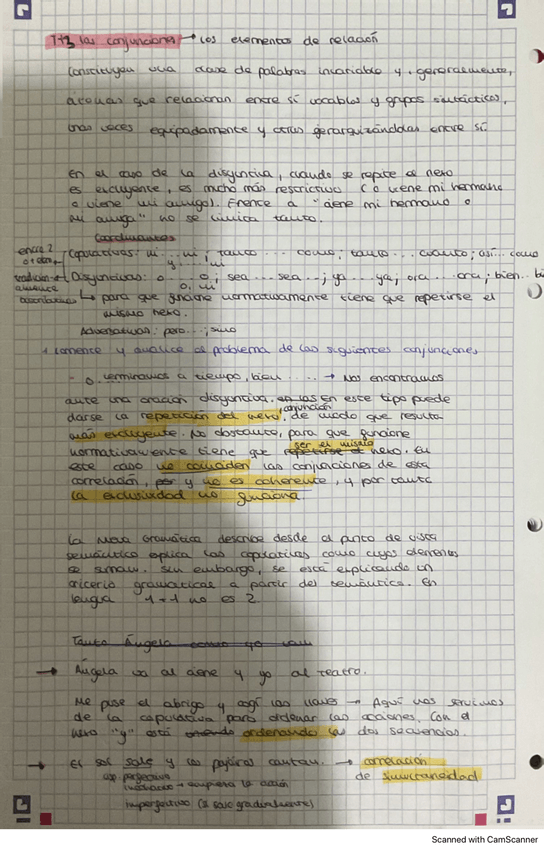 T+3 las conjunciones → Los elementos de relación
Constituyen una clase de palabras invariable y, generalmente,
átonas que relacionan entre sí vocablos y grupos sintácticos,
unas veces equipadamente y otras gerarquizándolas entre sí.
En el caso de la disyuntiva, cuando se repite el nexo
es excluyente, es mucho más restrictivo (o viene mi hermano
o viene mi amigo). Frente a "viene mi hermano o
mi amiga" no se limita tanto.
Coordinantes
Copulativas: ni ... ni; tanto ... como; tanto ... cuanto; así ... como
y ... ni
entre 2
Disyuntivas: o ... o; sea ... sea; ya ... ya; ora ... ora; bien.. bi
o, u
→ para que funcione normativamente tiene que repetirse el
mismo nexo.
Adversativas: pero ...; sino
+ Comente y analice el problema de las siguientes conjunciones
- o terminamos a tiempo, bien .... → Nos encontramos
ante una oración disyuntiva. en las En este tipo puede
darse la repetición del nexo, conjunción de modo que resulta
más excluyente. No obstante, para que funcione
normativamente tiene que repetirse el ser el mismo nexo. En
este caso no coinciden las conjunciones de esta
correlación, por y no es coherente, y por tanto
la exclusividad no funciona.
La Nueva Gramática describe desde el punto de vista
semántico explica las copulativas como cuyos elementos
se suman. Sin embargo, se está explicando un
criterio gramatical a partir del semántico. En
lengua 1+1 no es 2.
Tanto Ángela como yo
→ Ángela va al cine y yo al teatro.
Me puse el abrigo y cogí las llaves → Aquí nos servimos
de la copulativa para ordenar las acciones. Con el
nexo "y" está ordenando las dos secuencias.
→ El sol sale y los pájaros cantan. → correlación
de simultaneidad
asp. perfectivo
incoativo → empieza la acción
imperfectivo (si sale gradualmente)
Scanned with CamScanner